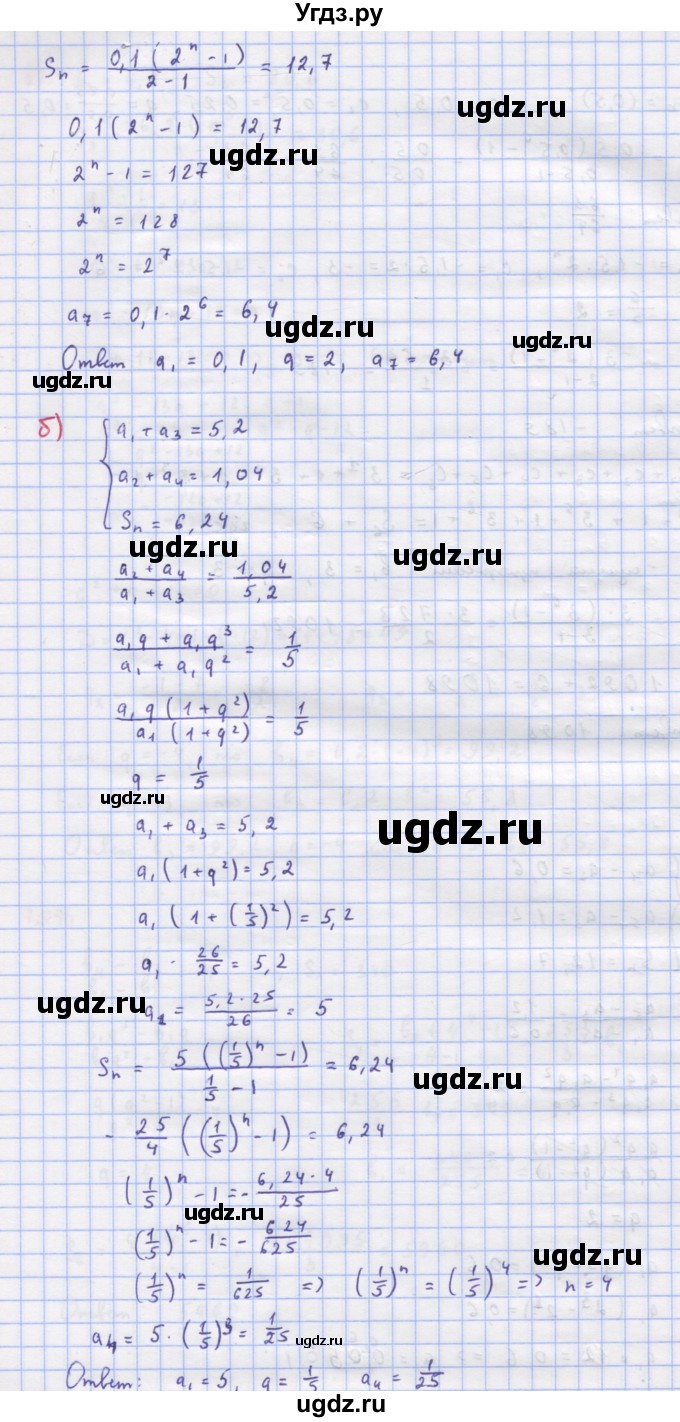 Угдз.ру
Sₙ = 0,1(2ⁿ - 1) / (2 - 1) = 12,7
ugdz.ru
0,1(2ⁿ - 1) = 12,7
ugdz.ru
2ⁿ - 1 = 127
2ⁿ = 128
2ⁿ = 2⁷
a₇ = 0,1 · 2⁶ = 6,4
ugdz.ru
ugdz.ru
Ответ a₁ = 0,1, q = 2, a₇ = 6,4
ugdz.ru
б) { a₁ + a₃ = 5,2
a₂ + a₄ = 1,04
Sₙ = 6,24
ugdz.ru
ugdz.ru
(a₂ + a₄) / (a₁ + a₃) = 1,04 / 5,2
ugdz.ru
(a₁q + a₁q³) / (a₁ + a₁q²) = 1/5
a₁q(1 + q²) / a₁(1 + q²) = 1/5
q = 1/5
ugdz.ru
a₁ + a₃ = 5,2
ugdz.ru
a₁(1 + q²) = 5,2
a₁(1 + (1/5)²) = 5,2
a₁ · 26/25 = 5,2
ugdz.ru
a₁ = 5,2 · 25 / 26 = 5
Sₙ = 5((1/5)ⁿ - 1) / (1/5 - 1) = 6,24
ugdz.ru
- 25/4 ((1/5)ⁿ - 1) = 6,24
(1/5)ⁿ - 1 = - 6,24 · 4 / 25
ugdz.ru
(1/5)ⁿ - 1 = - 624/625
ugdz.ru
(1/5)ⁿ = 1/625 => (1/5)ⁿ = (1/5)⁴ => n = 4
a₄ = 5 · (1/5)³ = 1/25
ugdz.ru
Ответ: a₁ = 5, q = 1/5 a₄ = 1/25
ugdz.ru